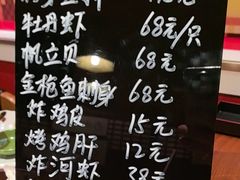 牡丹虾 68元/只
帆立贝 68元
金枪鱼刺身 68元
炸鸡皮 15元
烤鸡肝 12元
炸河虾 38元